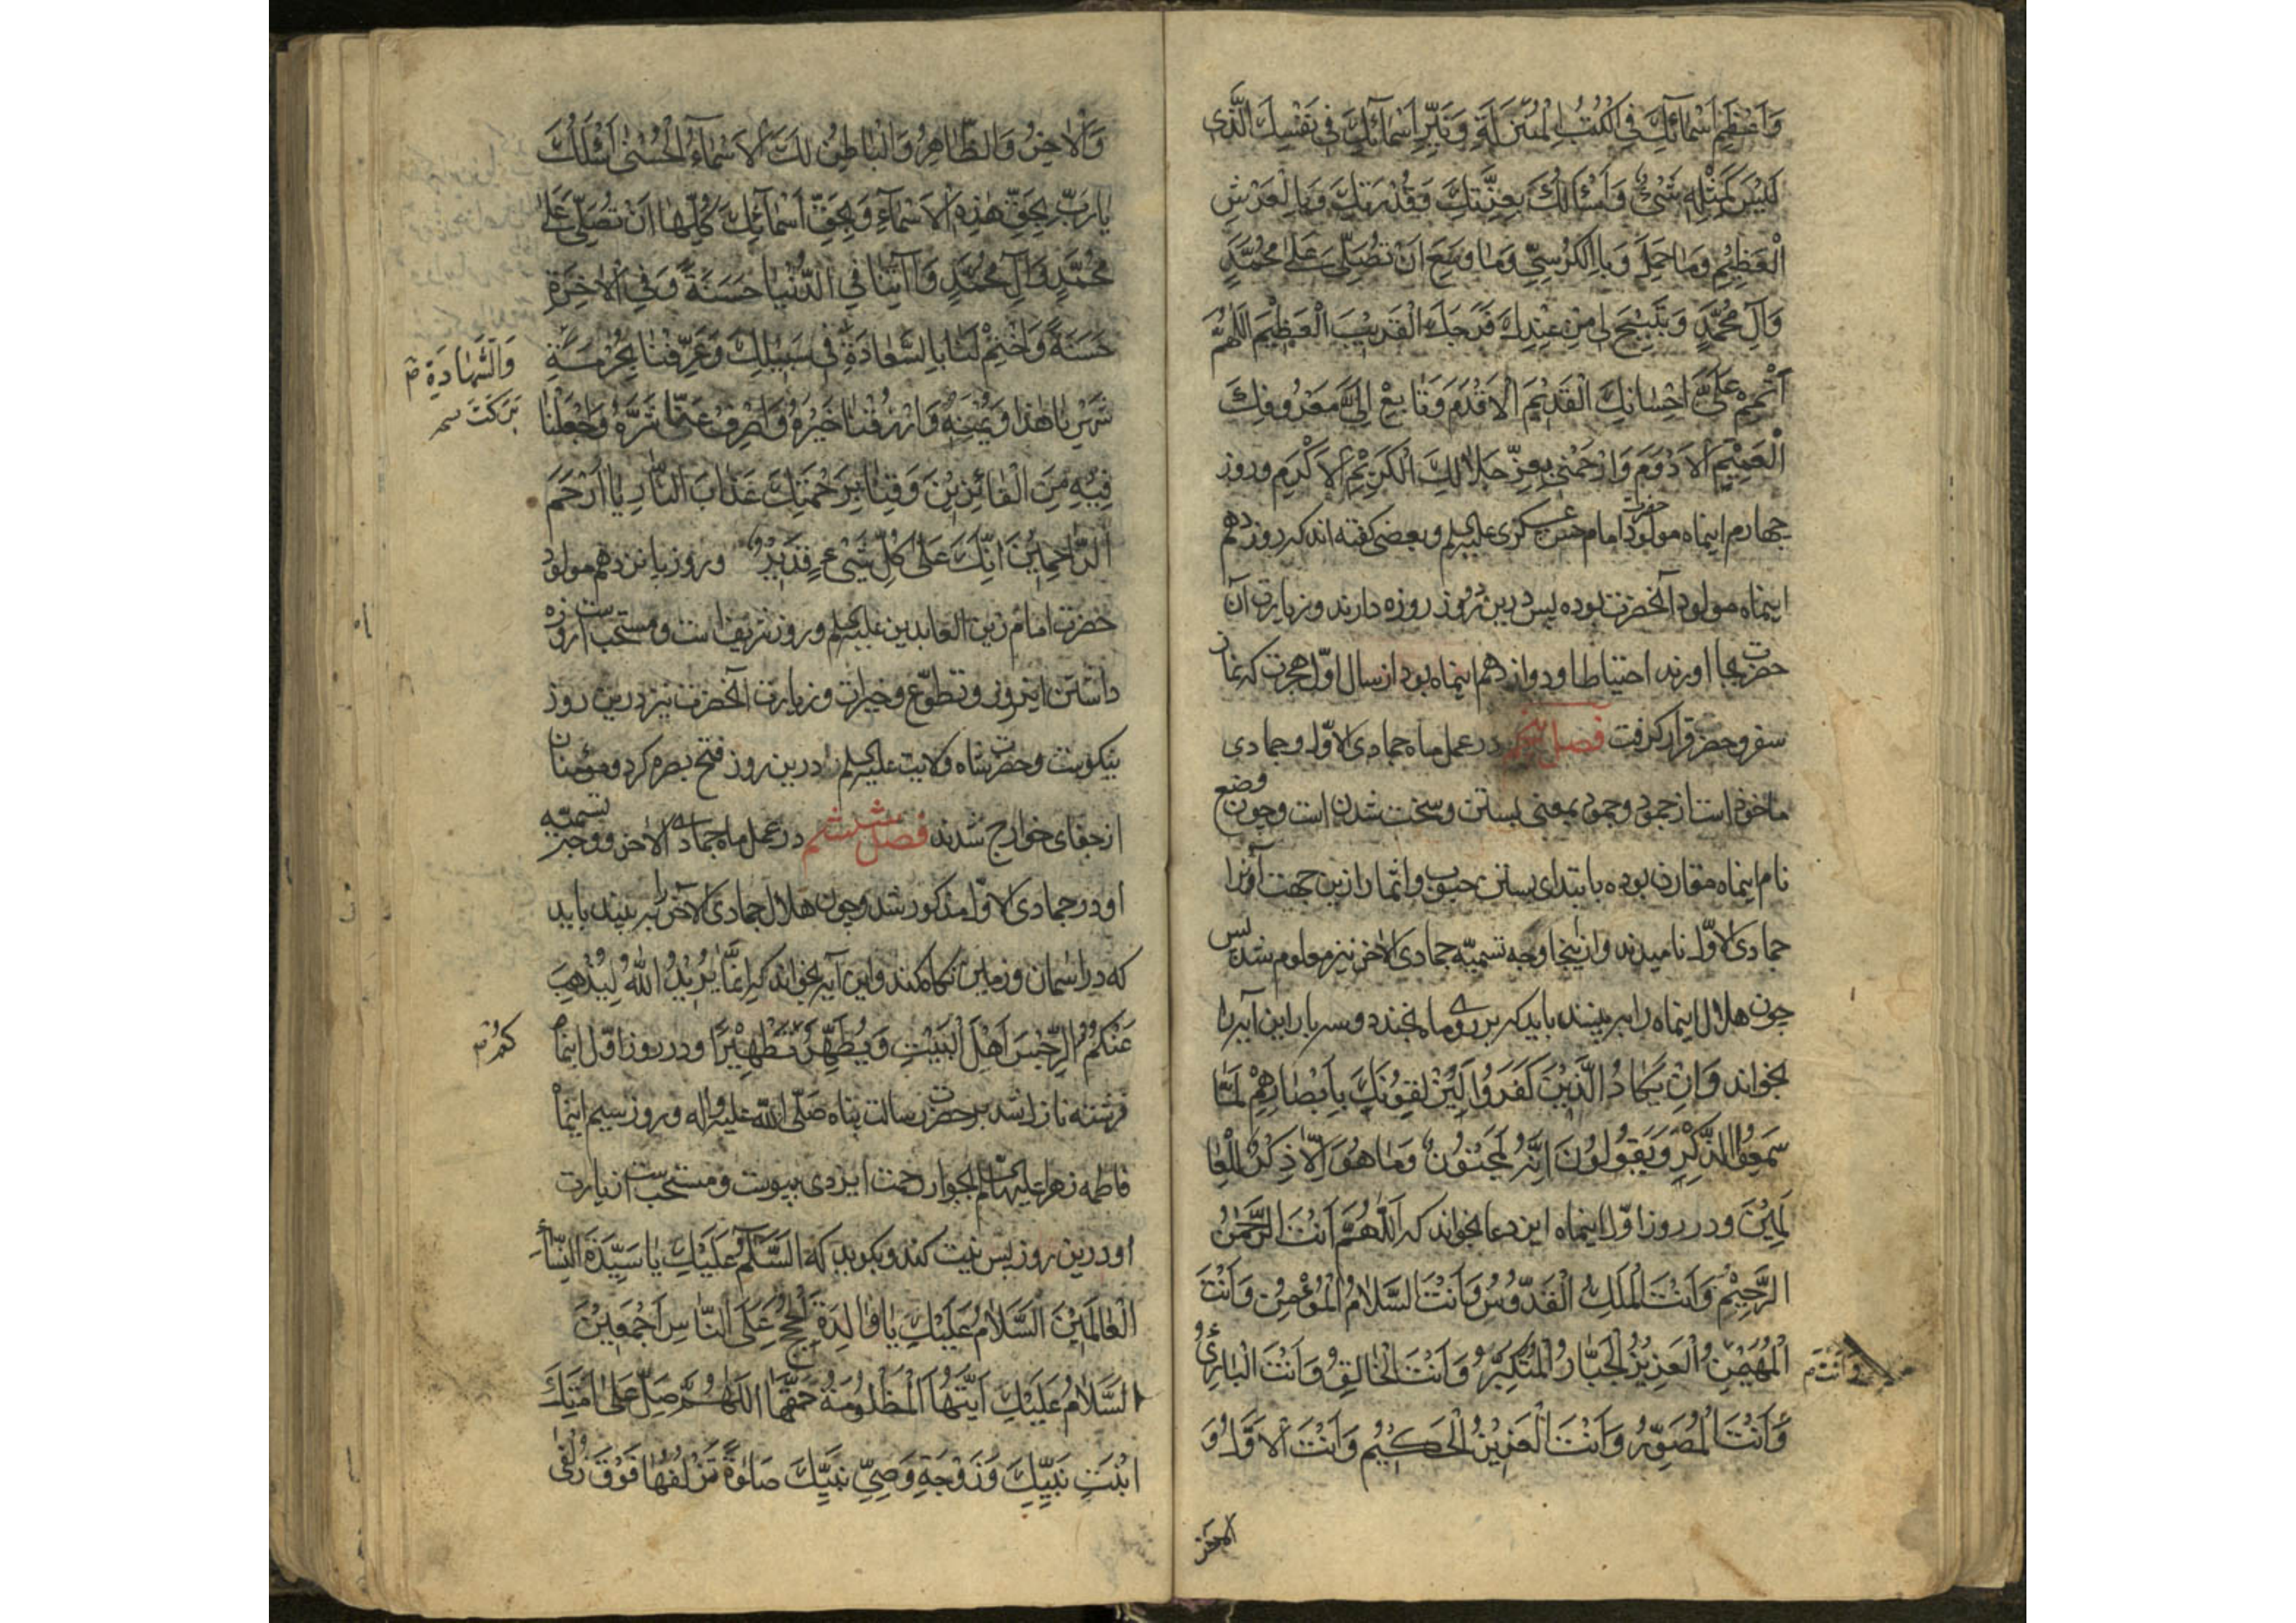 وَاَعْظَمِ اَسْمَائِكَ فِي الْكُتُبِ الْمُنَزَّلَةِ وَ اَسْمَائِكَ فِي نَفْسِكَ الَّذِى
لَيْسَ كَمِثْلِهِ شَيْءٌ وَاَسْاَلُكَ بِعِزَّتِكَ وَقُدْرَتِكَ وَبِالْعَرْشِ
الْعَظِيْمِ وَمَا حَمَلَ وَبِالْكُرْسِيِّ وَمَا وَسِعَ اَنْ تُصَلِّىَ عَلٰى مُحَمَّدٍ
وَآلِ مُحَمَّدٍ وَتُبِيْحَ لِى مِنْ عِنْدِكَ فَرَجَكَ الْقَرِيْبَ الْعَظِيْمَ اللّٰهُمَّ
اَتْمِمْ عَلَىَّ اِحْسَانَكَ الْقَدِيْمَ الْاَقْدَمَ وَتَابِعْ اِلَىَّ مَعْرُوفَكَ
الْعَمِيْمَ الْاَدْوَمَ وَارْحَمْنِى بِعِزِّ جَلَالِكَ الْكَرِيْمِ الْاَكْرَمِ و روز
چهارم اینماه مولود حضرت امام حسن عسکری علیه السلم و بعضی کفته اند که روز دهم
اینماه مولود آنحضرت بوده پس درین دو روز روزه دارند و زیارت آن
حضرت بجا اورند احتیاطا و دوازدهم اینماه بود از سال اوّل هجرت که نماز
سفر و حضر قرار کرفت فصل پنجم در عمل ماه جمادی الاوّل و جمادی
ماخوذ است از جمود و جمود بمعنی بستن و سخت شدن است و چون وضع
نام اینماه مقارن بوده بابتدای بستن حبوب و اثمار ازین جهت آنرا
جمادی الاوّل نامیدند و ازینجا وجه تسمیّه جمادی الاخر نیز معلوم شد پس
چون هلال اینماه را ببینند باید که بر روی ماه بخندد و سه بار این آیه را
بخواند وَاِنْ يَكَادُ الَّذِيْنَ كَفَرُوا لَيُزْلِقُوْنَكَ بِاَبْصَارِهِمْ لَمَّا
سَمِعُوا الذِّكْرَ وَيَقُوْلُوْنَ اِنَّهُ لَمَجْنُوْنٌ وَمَا هُوَ اِلَّا ذِكْرٌ لِلْعَا
لَمِيْنَ و در روز اوّل اینماه این دعا بخواند که اَللّٰهُمَّ اَنْتَ الرَّحْمٰنُ
الرَّحِيْمُ وَاَنْتَ الْمَلِكُ الْقُدُّوْسُ وَاَنْتَ السَّلَامُ الْمُؤْمِنُ وَاَنْتَ
الْمُهَيْمِنُ الْعَزِيْزُ الْجَبَّارُ الْمُتَكَبِّرُ وَاَنْتَ الْخَالِقُ وَاَنْتَ الْبَارِئُ
وَاَنْتَ م
وَاَنْتَ الْمُصَوِّرُ وَاَنْتَ الْعَزِيْزُ الْحَكِيْمُ وَاَنْتَ الْاَوَّلُ وَ
الاخر
وَالْاٰخِرُ وَالظَّاهِرُ وَالْبَاطِنُ لَكَ الْاَسْمَاءُ الْحُسْنٰى اَسْئَلُكَ
يَارَبِّ بِحَقِّ هٰذِهِ الْاَسْمَاءِ وَبِحَقِّ اَسْمَائِكَ كُلِّهَا اَنْ تُصَلِّىَ عَلٰى
مُحَمَّدٍ وَآلِ مُحَمَّدٍ وَآتِنَا فِى الدُّنْيَا حَسَنَةً وَفِى الْاٰخِرَةِ
حَسَنَةً وَاخْتِمْ لَنَا بِالسَّعَادَةِ فِى سَبِيْلِكَ وَعَرِّفْنَا بِحُرْمَةِ
وَالشَّهَادَةِ م
بَرَكَتَ
شَهْرِنَا هٰذَا وَيُمْنَهُ وَارْزُقْنَا خَيْرَهُ وَاصْرِفْ عَنَّا شَرَّهُ وَاجْعَلْنَا
فِيْهِ مِنَ الْفَائِزِيْنَ وَقِنَا بِرَحْمَتِكَ عَذَابَ النَّارِ يَا اَرْحَمَ
الرَّاحِمِيْنَ اِنَّكَ عَلٰى كُلِّ شَيْءٍ قَدِيْرٌ و روز پانزدهم مولود
حضرت امام زین العابدین علیه السلم و روز شریف است و مستحب است روزه
داشتن اینروز و تطوّع و خیرات و زیارت آنحضرت نیز درین روز
نیکوست و حضرت شاه ولایت علیه السلم درین روز فتح بصره کرد و مؤمنان
از جفای خوارج شدند فصل ششم در عمل ماه جمادی الاخر و وجه تسمیّه
او در جمادی الاوّل مذکور شد و چون هلال جمادی الاخر را ببیند باید
که در اسمان و زمین نکاه کند و این آیه بخواند که اِنَّمَا يُرِيْدُ اللّٰهُ لِيُذْهِبَ
عَنْكُمُ الرِّجْسَ اَهْلَ الْبَيْتِ وَيُطَهِّرَ تَطْهِيْرًا و در روز اوّل اینماه
كُمْ م
فرشته نازل شد بر حضرت رسالت پناه صَلَّى اللّٰه علیه واله و روز سیم اینماه
فاطمه زهرا علیها السلم بجوار رحمت ایزدی پیوست و مستحب است زیارت
او درین روز پس نیت کند و بکوید که اَلسَّلَامُ عَلَيْكِ يَا سَيِّدَةَ النِّسَاءِ
الْعَالَمِيْنَ اَلسَّلَامُ عَلَيْكِ يَا وَالِدَةَ الْحُجَجِ عَلَى النَّاسِ اَجْمَعِيْنَ
اَلسَّلَامُ عَلَيْكِ اَيَّتُهَا الْمَظْلُوْمَةُ حَقَّهَا اَللّٰهُمَّ صَلِّ عَلٰى اَمَتِكَ
ابْنَتِ نَبِيِّكَ وَزَوْجَةِ وَصِيِّ نَبِيِّكَ صَلٰوةً تُزْلِفُهَا فَوْقَ زُلْفٰى